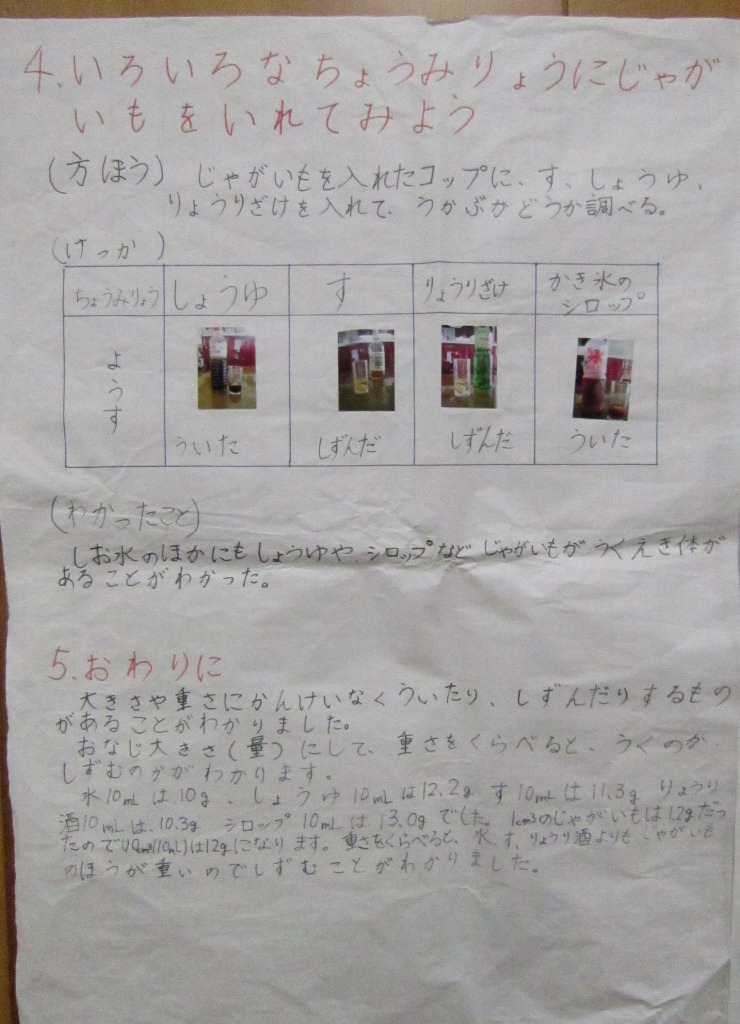 4.いろいろなちょうみりょうにじゃが
いもをいれてみよう
(方ほう) じゃがいもを入れたコップに、す、しょうゆ、
りょうりざけを入れて、うかぶかどうか調べる。
(けっか)
ちょうみりょう しょうゆ す りょうりざけ かき氷の
シロップ
ようす
ういた しずんだ しずんだ ういた
(わかったこと)
しお水のほかにもしょうゆや、シロップなどじゃがいもがうくえき体が
あることがわかった。
5.おわりに
大きさや重さにかんけいなくういたり、しずんだりするもの
があることがわかりました。
おなじ大きさ(量)にして、重さをくらべると、うくのか、
しずむのかがわかります。
水10mLは10g、しょうゆ10mLは12.2g す10mLは11.3g りょうり
酒10mLは、10.3g シロップ10mLは13.0gでした。1cm3のじゃがいもは1.2gだっ
たので10cm3(10mL)は12gになります。重さをくらべると、水、す、りょうり酒よりもじゃがいも
のほうが重いのでしずむことがわかりました。